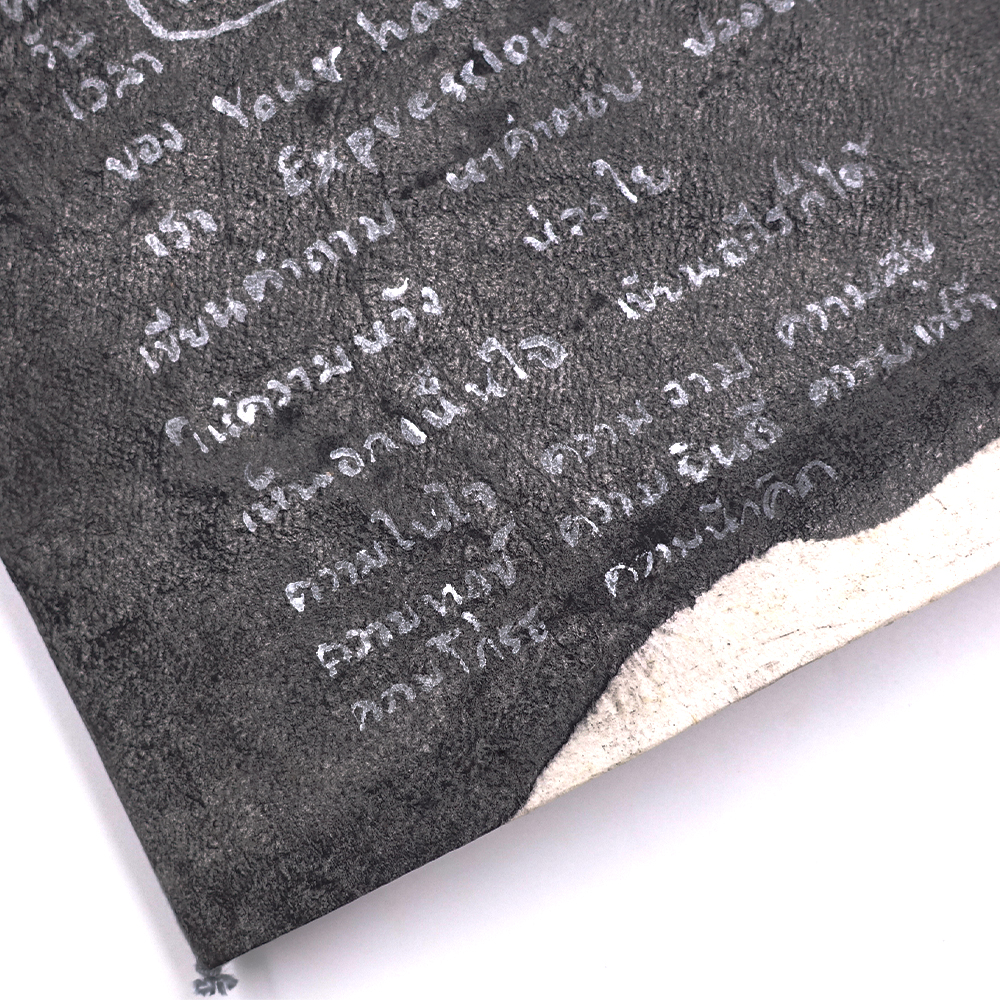 เวลา
ของ Your
เรา Expression
เขียนคำถาม หาคำตอบ
ให้ความหวัง ห่วงใย
เห็นอกเห็นใจ เขียนอะไรก็ได้
ความไม่รู้ ความงาม ความสุข
ความทุกข์ ความยินดี ความเศร้า
ความโกรธ ความนึกคิด